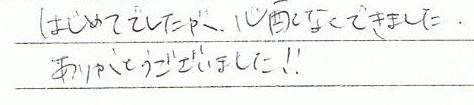 はじめてでしたが、心配なくできました.
ありがとうございました!!